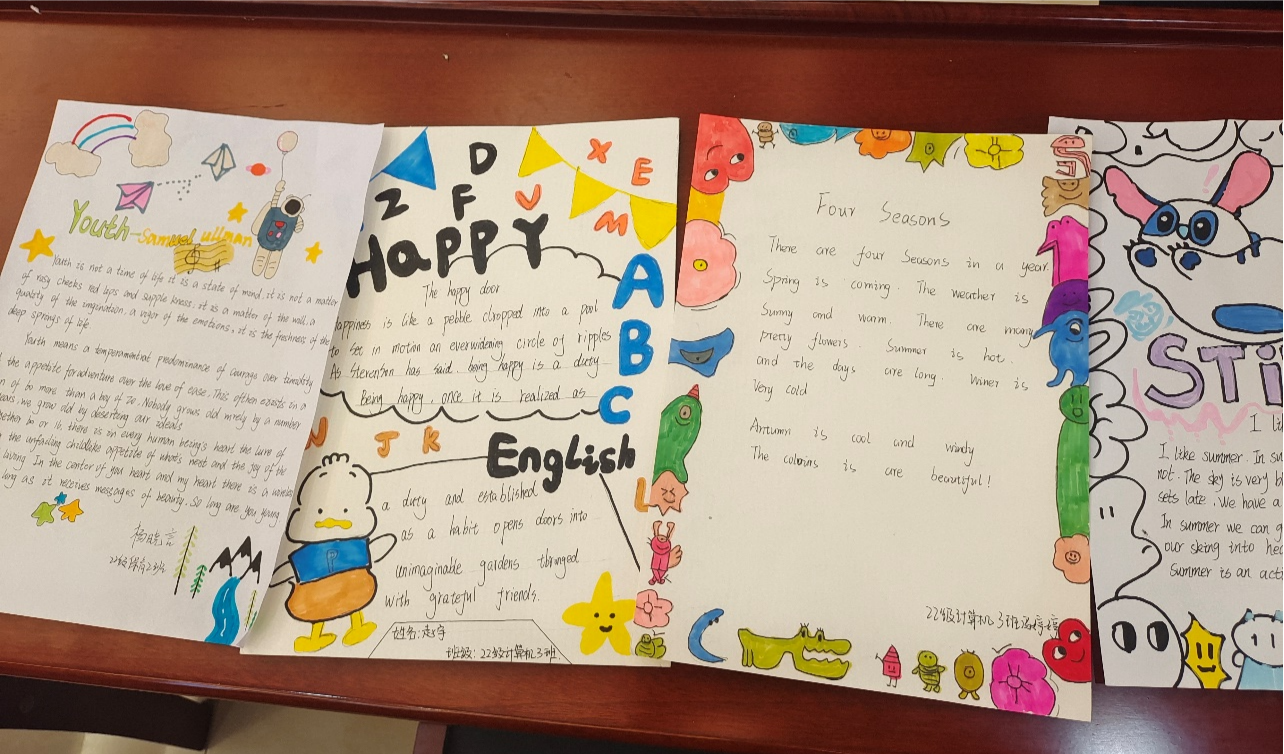 Youth-Samuel ullman
Youth is not a time of life it is a state of mind. it is not a matter
of rosy cheeks red lips and supple kness. it is a matter of the will. a
quality of the imgination. a vigor of the emotions. it is the freshness of the
deep springs of life.
Youth means a temperamental predominance of courage over timidity
the appetite for adventure over the love of ease. This often exists in a
of 60 more than a boy of 20. Nobody grows old mrely by a number
we grow old by deserting our ideals
60 or 16. there is in every human being's heart the lure of
the unfailing childlike appetite of what's next and the joy of
living. In the center of you heart and my heart there is a
long as it receives messages of beauty. So long are you young
杨晓言
Z D F U X E M
Happy
A
B
C
The happy door
appiness is like a pebble dropped into a pool
to set in motion an everwidening circle of ripples
As Stevenson has said. being happy is a duty
Being happy, once it is realized as
N J K
English
L
a duty and established
as a habit opens doors into
unimaginable gardens thringed
with grateful friends.
姓名:赵宇
班级:22级计算机3班
Four Seasons
There are four Seasons in a year.
Spring is coming. The weather is
Sunny and warm. There are many
pretty flowers. Summer is hot.
and the days are long. Winer is
Very cold
Artumn is cool and windy
The colours is are beautiful!
22级计算机3班
STi
I li
I like summer. In su
not. The sky is very bl
sets late. We have a
In summer we can g
our sking into hea
Summer is an acti